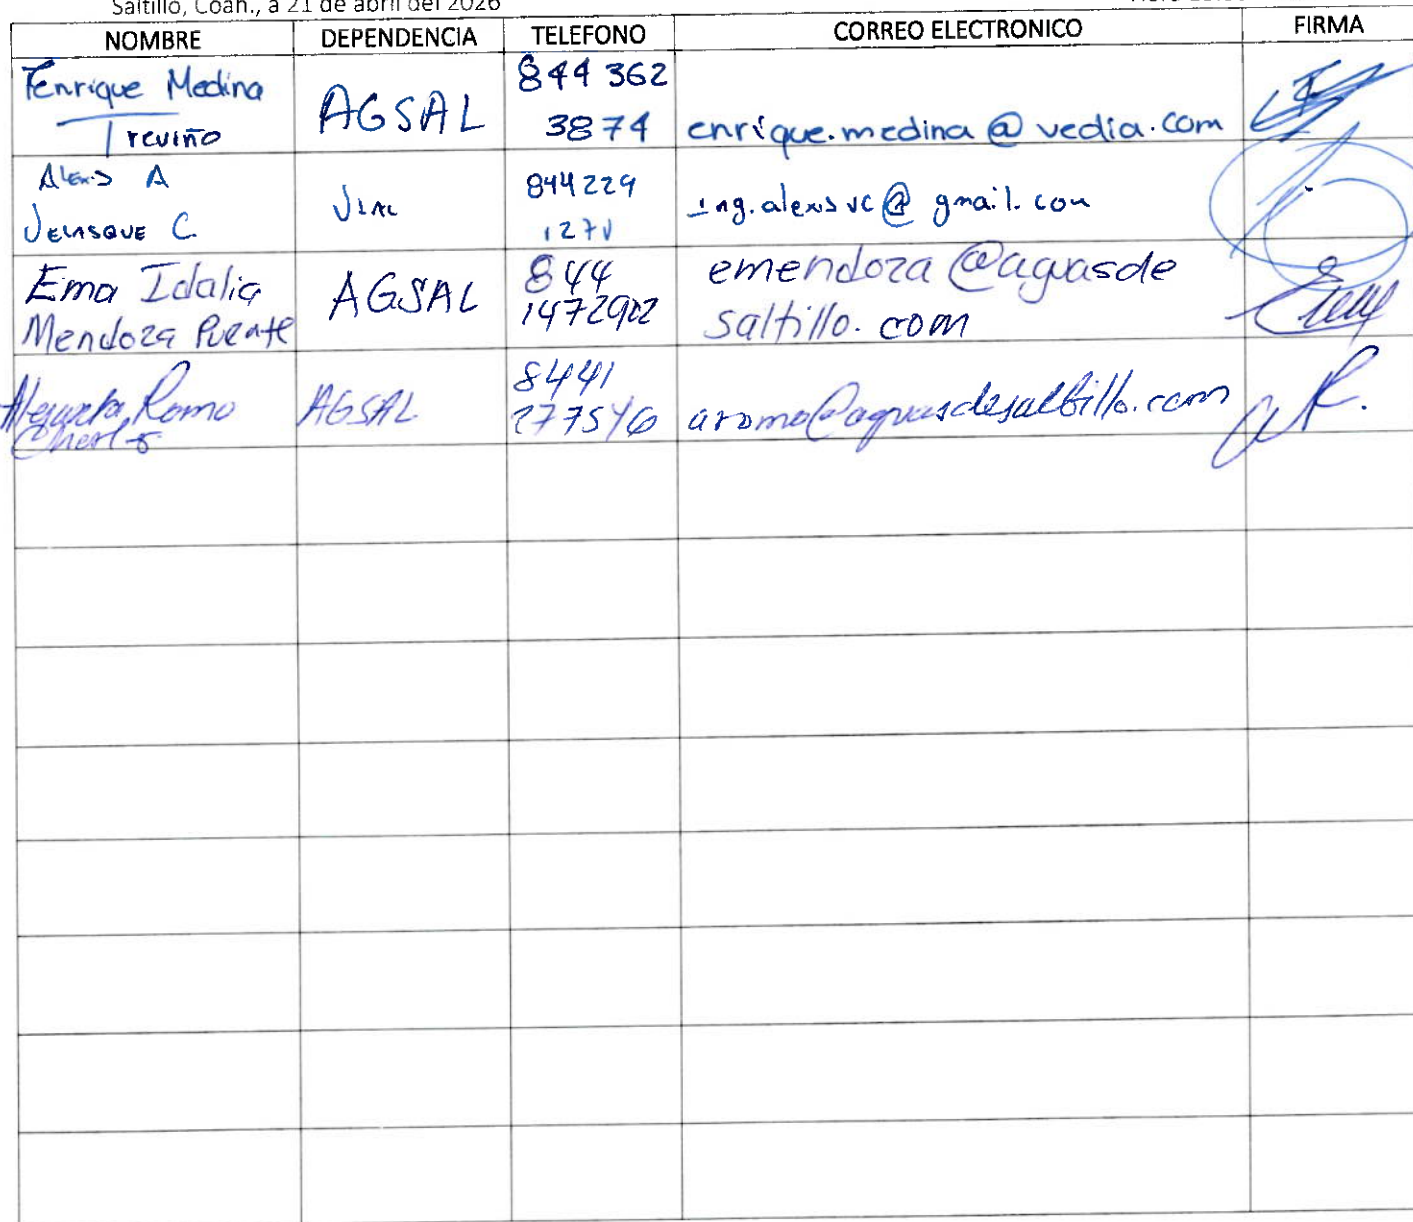 Saltillo, Coah., a 21 de abril del 2026
NOMBRE DEPENDENCIA TELEFONO CORREO ELECTRONICO FIRMA
Enrique Medina
Treviño
AGSAL
844 362
3874
enrique.medina@vedia.com
Alexis A
Velasque C.
844229
ing.alexisvc@gmail.com
Ema Idalia
Mendoza Puente
AGSAL
844
1472902
emendoza@aguasde
saltillo.com
Romo
AGSAL
8441
277546
aromo@aguasdesaltillo.com